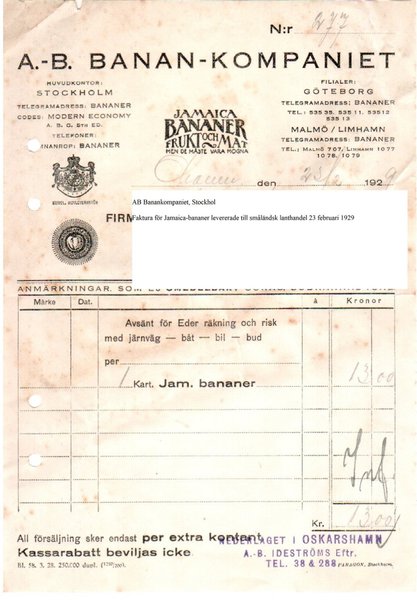 N:r 277
A.-B. BANAN-KOMPANIET
HUVUDKONTOR:
STOCKHOLM
TELEGRAMADRESS: BANANER
CODES: MODERN ECONOMY
A. B. C. 5TH ED.
TELEFONER:
NAMNANROP: BANANER
JAMAICA
BANANER
FRUKT OCH MAT
MEN DE MÅSTE VARA MOGNA
FILIALER:
GÖTEBORG
TELEGRAMADRESS: BANANER
TEL.: 535 35, 535 11, 535 12
535 13
MALMÖ / LIMHAMN
TELEGRAMADRESS: BANANER
TEL.: MALMÖ 707, LIMHAMN 1077
1078, 1079
KUNGL. HOVLEVERANTÖR
den 23/2 1929
FIRM
AB Banankompaniet, Stockhol
Faktura för Jamaica-bananer levererade till småländsk lanthandel 23 februari 1929
ANMÄRKNINGAR, SOM EJ OMEDELBART
Märke Dat. à Kronor
Avsänt för Eder räkning och risk
med järnväg — båt — bil — bud
per
1 Kart. Jam. bananer 13.00
Kr. 13.00
All försäljning sker endast per extra kontant.
Kassarabatt beviljas icke.
NEDERLAGET I OSKARSHAMN
A.-B. IDESTRÖMS Eftr.
TEL. 38 & 288
Bl. 58. 3. 28. 250.000 dupl.
PARAGON, Stockholm.